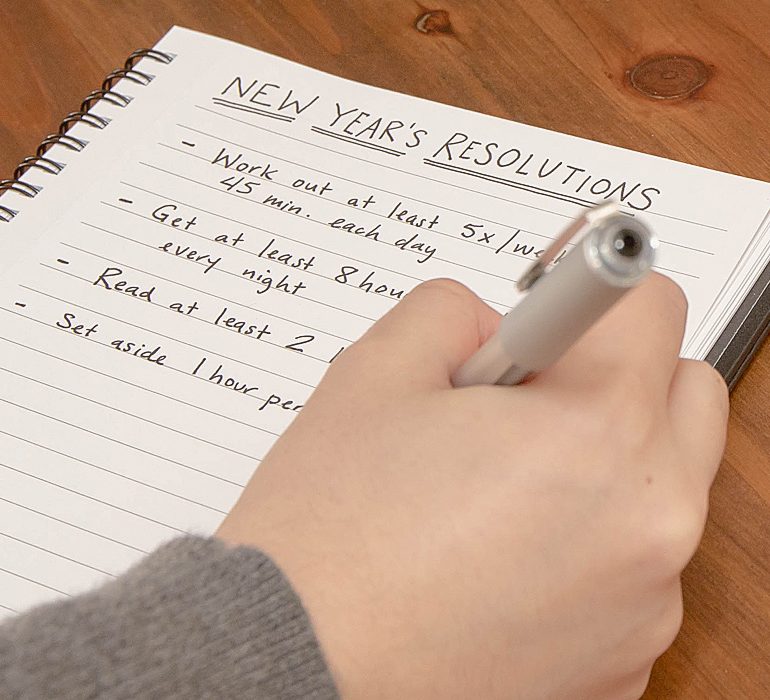 NEW YEAR'S RESOLUTIONS
- Work out at least 5x/week
45 min. each day
- Get at least 8 hou
every night
- Read at least 2
- Set aside 1 hour per